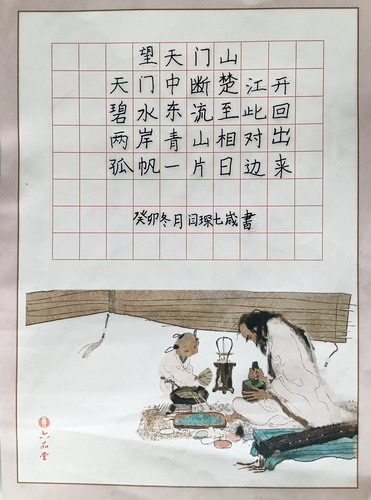 望天门山
天门中断楚江开
碧水东流至此回
两岸青山相对出
孤帆一片日边来
癸卯冬月闫琛七歳書
六品堂